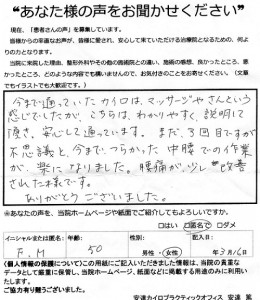 "あなた様の声をお聞かせください"
現在、「患者さんの声」を募集しています。
皆様からの率直なお声が、皆様に愛され、安心して来ていただける治療院となるための、何よ
りの力となります。
当院に来院した理由、整形外科やその他の施術院との違い、施術の感想、良かったところ、悪
かったところ、どのような内容でも構いませんので、お気付きのことをお寄せください。（文章
でもイラストでも大歓迎）
今まで通っていたカイロは、マッサージやさんという
感じでしたが、こちらは、わかりやすく、説明して
頂き、安心して通っています。まだ、3回目ですが
不思議と、今まで、つらかった中腰での作業
が、楽になりました。腰痛が、少し改善
された様です。
ありがとうございました。
※あなたの声を、当院ホームページや紙面でご紹介してもよろしいですか。
□はい □匿名で □ダメ
イニシャルまたは匿名： 年齢： 性別： 記入日：
F.M 50 男性・女性 年3月16日
（個人情報の保護について）この用紙にご記入いただきました情報は、当院の貴重な
データとして厳重に保管し、当院ホームページ、紙面などに掲載する用途のみに利用い
たします。
ご協力有り難うございました。
安達カイロプラクティックオフィス 安達 篤